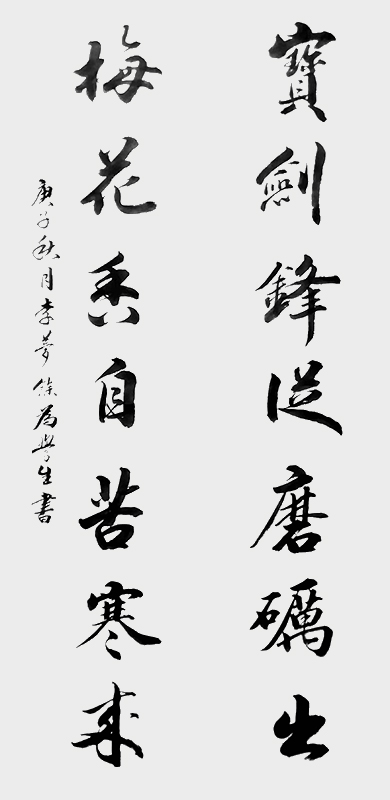 寶劍鋒從磨礪出
梅花香自苦寒來
庚子秋月李夢條為學生書